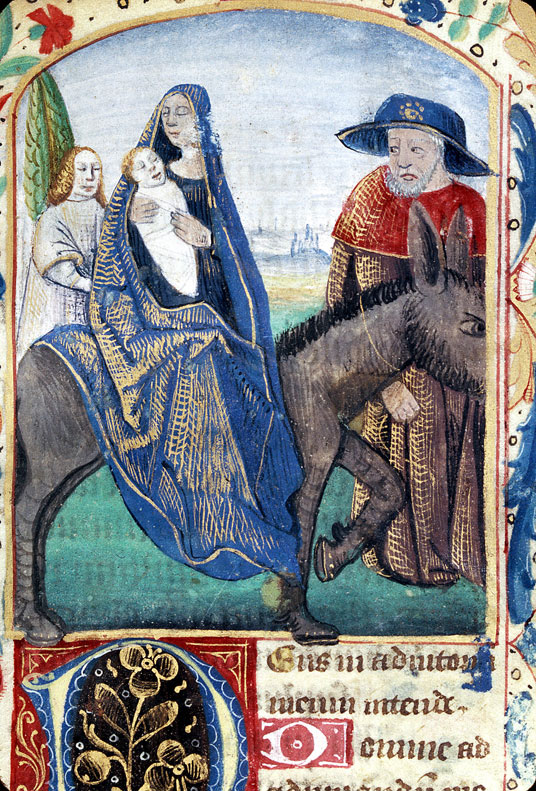 Eus in adiutori
meum intende.
Domine ad
adiuvandum me